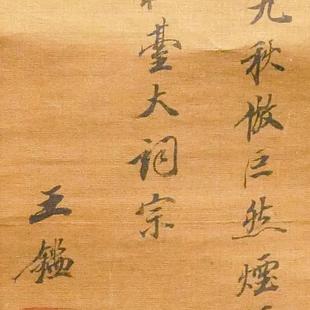 九秋倣巨然煙
臺大詞宗
王鑑